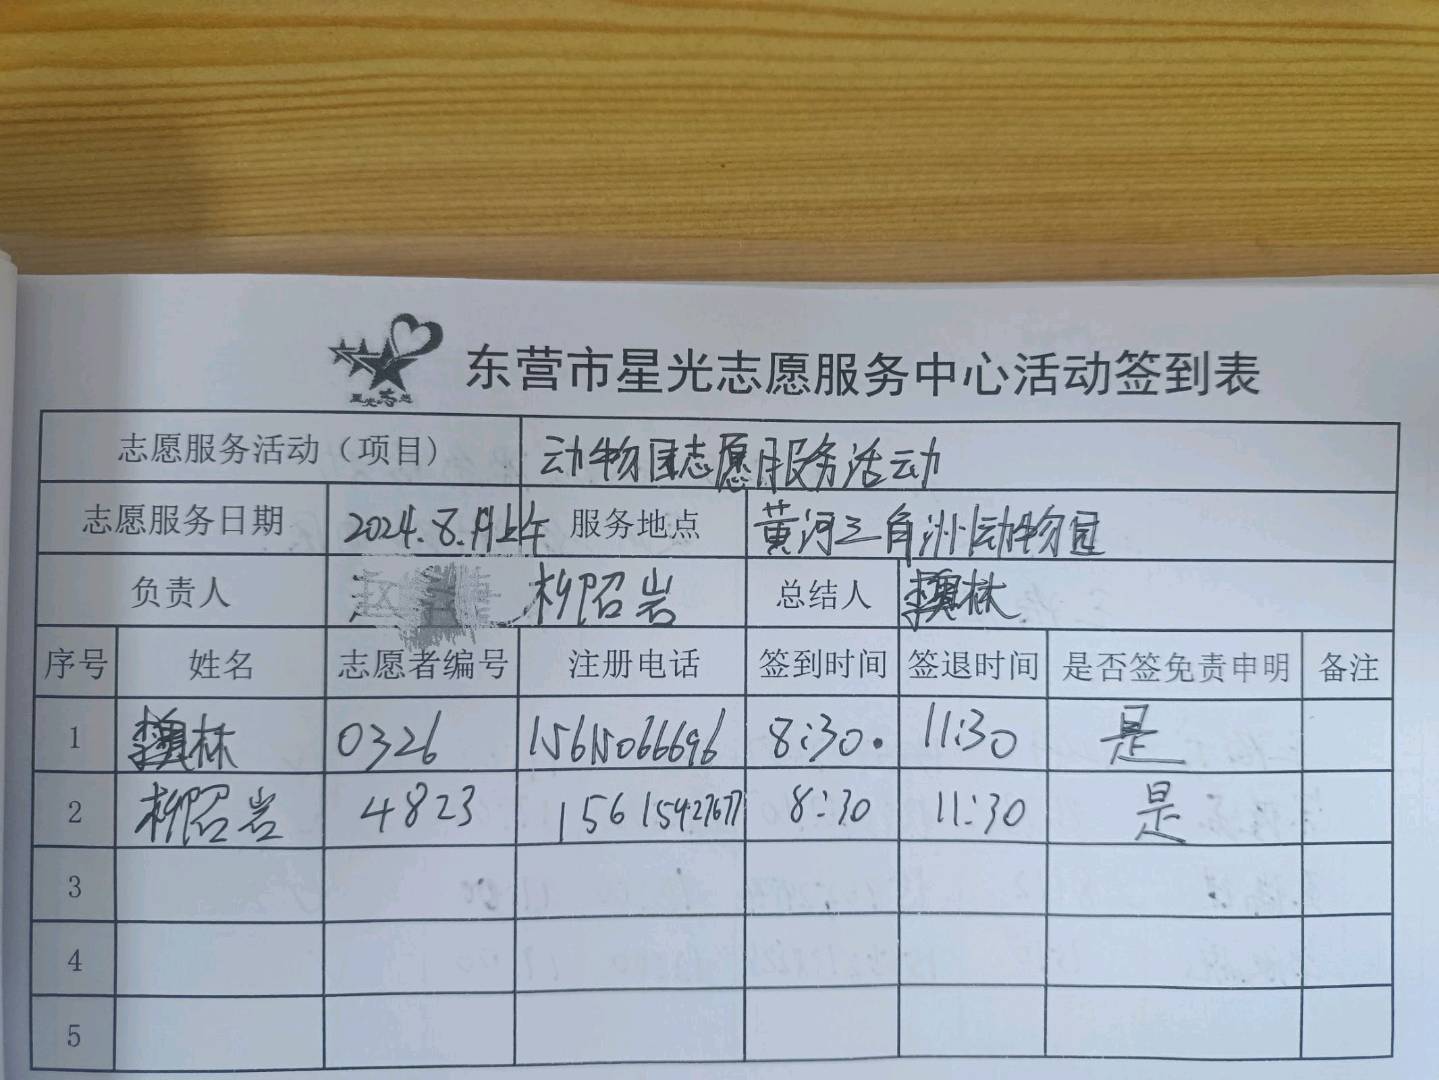 星光志愿
东营市星光志愿服务中心活动签到表
志愿服务活动（项目） 动物园志愿服务活动
志愿服务日期 2024.8. 上午 服务地点 黄河三角洲动物园
负责人 赵 柳昭岩 总结人 林
序号 姓名 志愿者编号 注册电话 签到时间 签退时间 是否签免责申明 备注
1 林 0326 15615066696 8:30. 11:30 是
2 柳昭岩 4823 15615427677 8:30 11:30 是
3
4
5